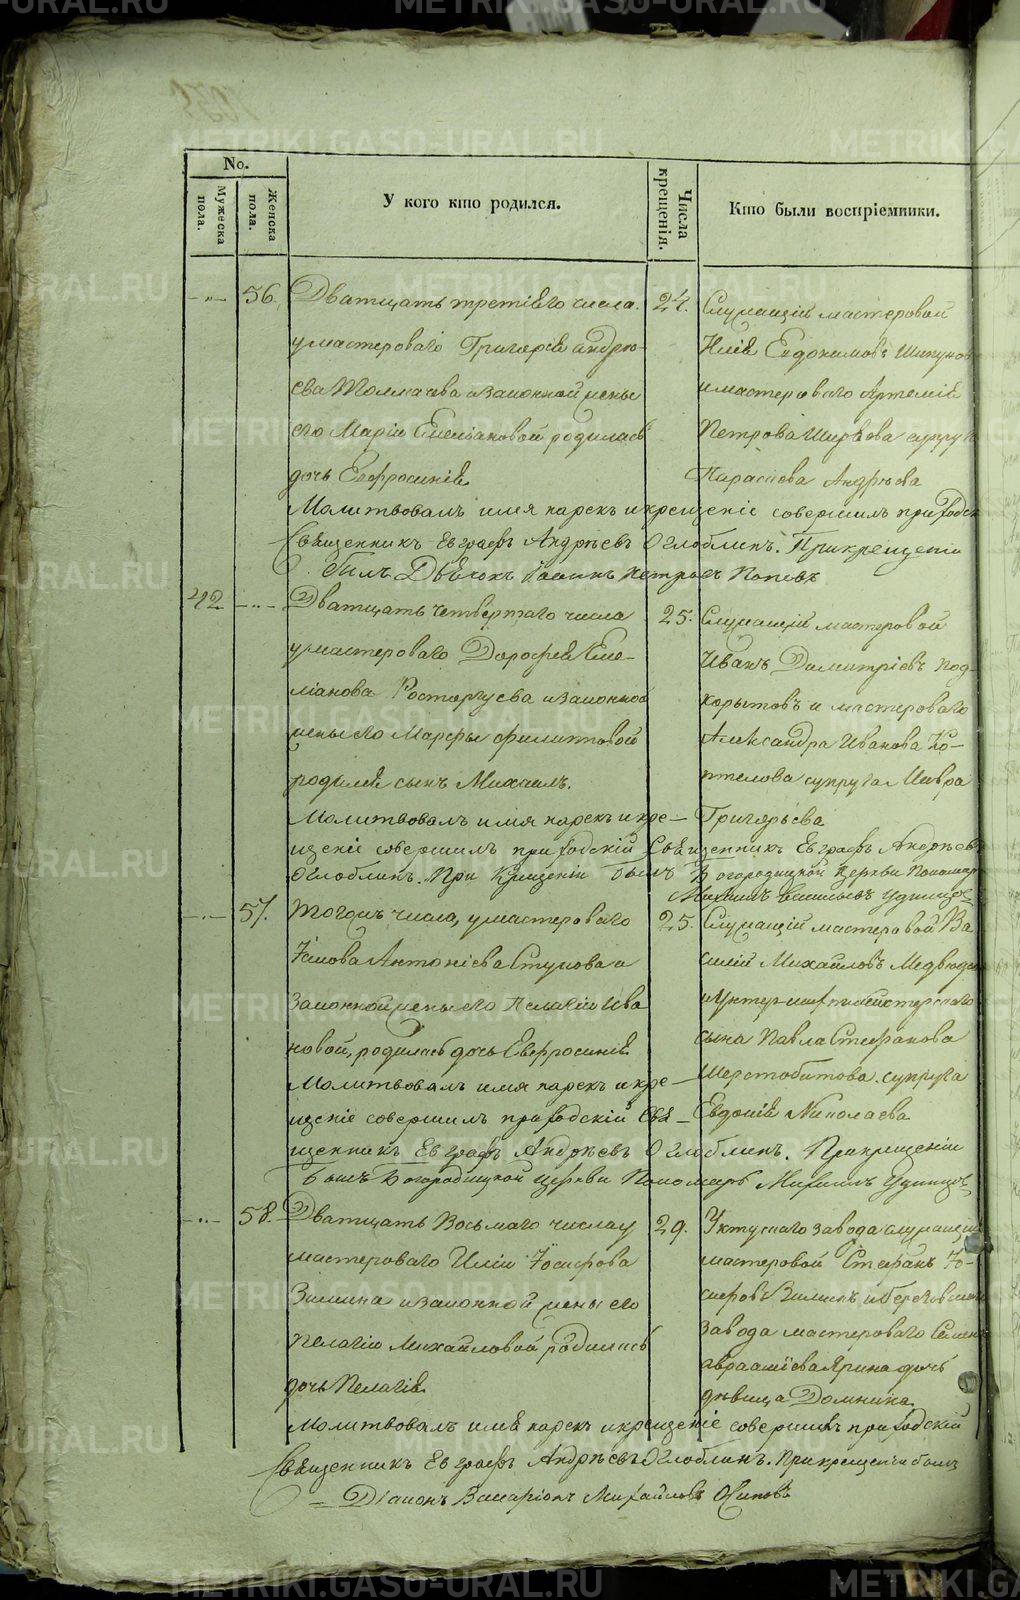 No.
Мужеска пола.
Женска пола.
У кого кто родился.
Числа крещенія.
Кто были воспріемники.
-"- 56. Дватцать третіяго числа
у мастероваго Григорія Андрѣ-
ева Толмачева и законной жены
его Маріи Емеліановой родилась
дочь Евфросинія
24. Служащій мастеровой
Илія Евдокимовъ Шипунов
и мастероваго Артемія
Петрова Ширяева супруга
Параскева Андреева
Молитвовалъ имя нарекъ и крещеніе совершилъ приходск
Священникъ Евграфъ Андреевъ Оглоблинъ. При крещеніи
былъ Дьячокъ Іоаннъ Петровъ Поповъ
42 -"- Дватцать четвертаго числа
у мастероваго Дорофея Еме-
ліанова Расторгуева и законной
жены его Марфы Филипповой
родился сынъ Михаилъ.
25. Служащій мастеровой
Иванъ Димитріевъ Под-
корытовъ и мастероваго
Александра Иванова Ко-
птелова супруга Мавра
Григорьева
Молитвовалъ имя нарекъ и кре-
щеніе совершилъ приходскій Священникъ Евграфъ Андреевъ
Оглоблинъ. При крещеніи былъ Богородицкой церкви Пономарь
Михаилъ Васильевъ Удинцовъ
-"- 57. Тогожъ числа, у мастероваго
Іакова Антоніева Стукова и
законной жены его Пелагіи Ива
новой, родилась дочь Евфросинія
25. Служащій мастеровой Ва
силій Михайловъ Медвѣдев
и Унтер-шихтмейстерскаго
сына Павла Стефанова
Шерстобитова супруга
Евдокія Николаева
Молитвовалъ имя нарекъ и кре-
щеніе совершилъ приходскій Свя-
щенникъ Евграфъ Андреевъ Оглоблинъ. При крещеніи
былъ Богородицкой церкви Пономарь Михаилъ Удинцовъ
-"- 58. Дватцать Восьмаго числа у
мастероваго Иліи Іосифова
Зимина и законной жены его
Пелагіи Михайловой родилась
дочь Пелагія
29. Уктускаго завода служащій
мастеровой Стефанъ Іо-
сифовъ Зиминъ и березовскаго
завода мастероваго Семена
Авраамиева Ярина дочь
дѣвица Домника
Молитвовалъ имя нарекъ и крещеніе совершилъ приходскій
Священникъ Евграфъ Андреевъ Оглоблинъ. При крещеніи былъ
Діаконъ Виссаріонъ Михайловъ Осиповъ
METRIKI.GASO-URAL.RU